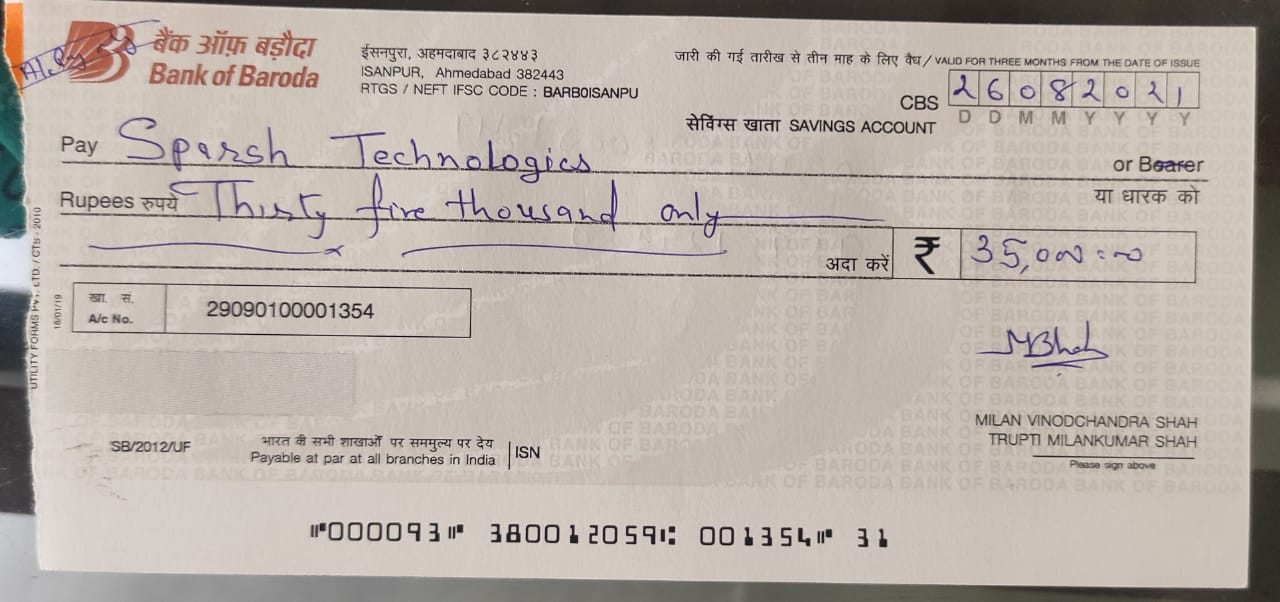 बैंक ऑफ़ बड़ौदा
Bank of Baroda
ईसनपुरा, अहमदाबाद ३८२४४३
ISANPUR, Ahmedabad 382443
RTGS / NEFT IFSC CODE : BARB0ISANPU
जारी की गई तारीख से तीन माह के लिए वैध / VALID FOR THREE MONTHS FROM THE DATE OF ISSUE
CBS 26082021
D D M M Y Y Y Y
सेविंग्स खाता SAVINGS ACCOUNT
Pay Sparsh Technologies or Bearer
Rupees रुपये Thirty five thousand only या धारक को
अदा करें ₹ 35,000=00
खा. सं.
A/c No. 29090100001354
MBShah
MILAN VINODCHANDRA SHAH
TRUPTI MILANKUMAR SHAH
Please sign above
SB/2012/UF
भारत की सभी शाखाओं पर सममुल्य पर देय
Payable at par at all branches in India ISN
000093 380012059 001354 31
LTD. / CTS - 2010
18/01/19
BANK OF BARODA